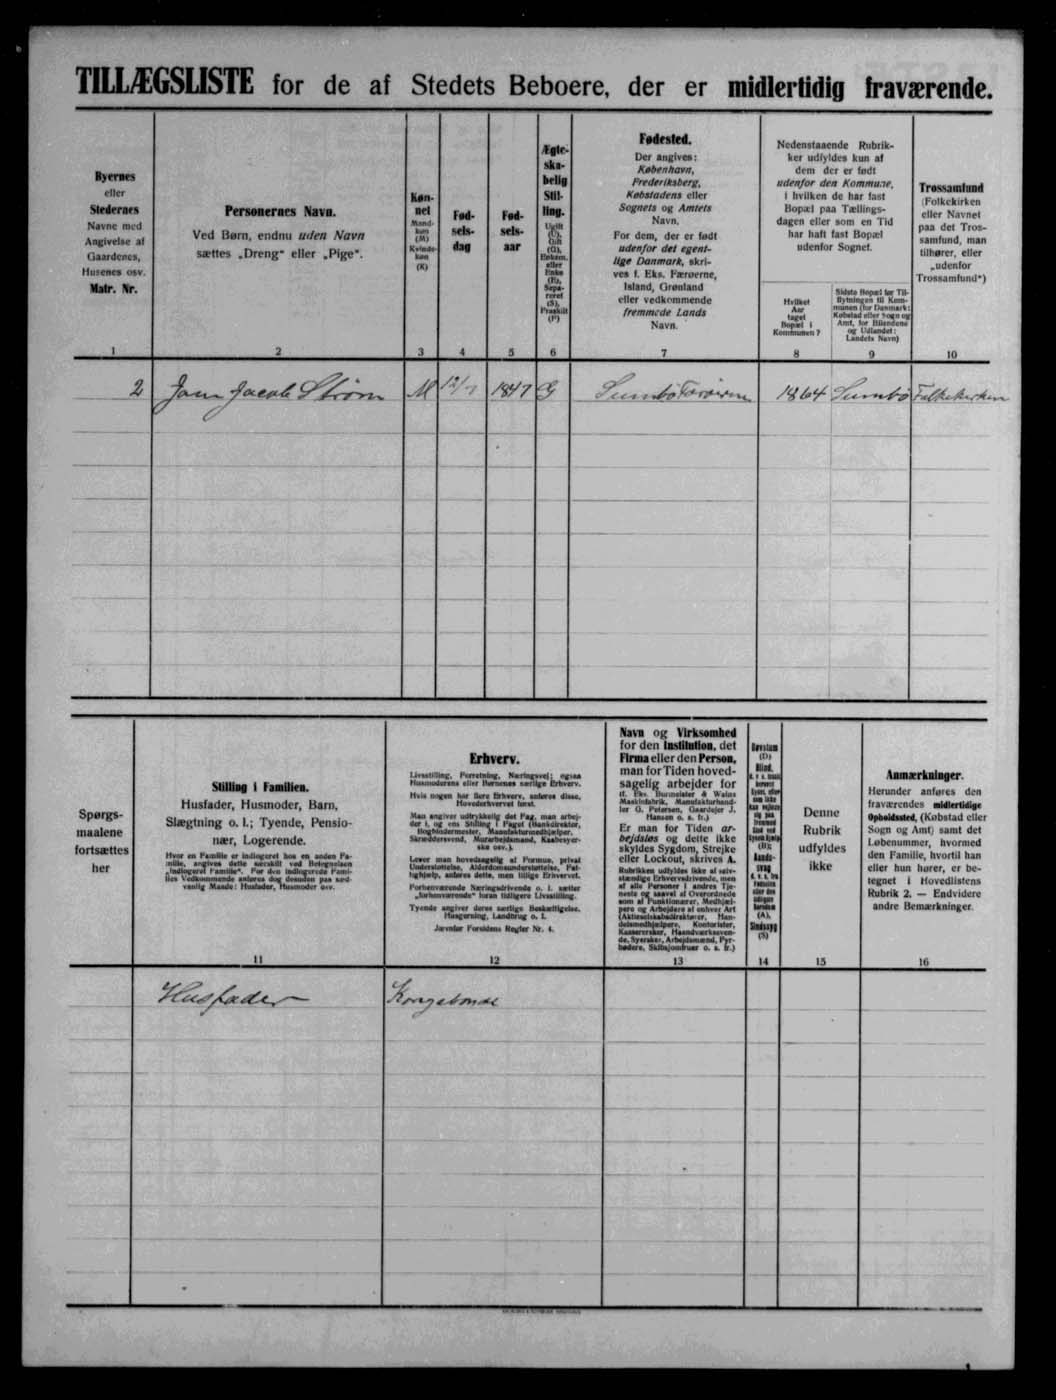 TILLÆGSLISTE for de af Stedets Beboere, der er midlertidig fraværende.
Byernes
eller
Stedernes
Navne med
Angivelse af
Gaardenes,
Husenes osv.
Matr. Nr.
1
Personernes Navn.
Ved Børn, endnu uden Navn
sættes „Dreng“ eller „Pige“.
2
Køn-
net
Mand-
køn
(M)
Kvinde-
køn
(K)
3
Fød-
sels-
dag
4
Fød-
sels-
aar
5
Ægte-
ska-
belig
Stil-
ling.
Ugift
(U),
Gift
(G),
Enkem.
eller
Enke
(E),
Sepa-
reret
(S),
Fraskilt
(F)
6
Fødested.
Der angives:
København,
Frederiksberg,
Købstadens eller
Sognets og Amtets
Navn.
For dem, der er født
udenfor det egent-
lige Danmark, skri-
ves f. Eks. Færøerne,
Island, Grønland
eller vedkommende
fremmede Lands
Navn.
7
Nedenstaaende Rubrik-
ker udfyldes kun af
dem der er født
udenfor den Kommune,
i hvilken de har fast
Bopæl paa Tællings-
dagen eller som en Tid
har haft fast Bopæl
udenfor Sognet.
Hvilket
Aar
taget
Bopæl i
Kommunen?
8
Sidste Bopæl før Til-
flytningen til Kom-
munen (for Danmark:
Købstad eller Sogn og
Amt, for Bilandene
og Udlandet:
Landets Navn)
9
Trossamfund
(Folkekirken
eller Navnet
paa det Tros-
samfund, man
tilhører, eller
„udenfor
Trossamfund“)
10
2 Joen Jacob Strøm M 12/7 1847 G Sumbø Færøerne 1864 Sumbø Folkekirken
Spørgs-
maalene
fortsættes
her
Stilling i Familien.
Husfader, Husmoder, Barn,
Slægtning o. l.; Tyende, Pensio-
nær, Logerende.
Hvor en Familie er indlogeret hos en anden Fa-
milie, angives dette særskilt ved Betegnelsen
„Indlogeret Familie“. For den indlogerede Fami-
lies Vedkommende anføres dog desuden paa sæd-
vanlig Maade: Husfader, Husmoder osv.
11
Erhverv.
Livsstilling, Forretning, Næringsvej; ogsaa
Husmoderens eller Børnenes særlige Erhverv.
Hvis nogen har flere Erhverv, anføres disse,
Hovederhvervet først.
Man angiver udtrykkelig det Fag, man arbej-
der i, og ens Stilling i Faget (Bankdirektør,
Bogbindermester, Manufakturmedhjælper,
Skræddersvend, Murarbejdsmand, Kaabesyer-
ske osv.).
Lever man hovedsagelig af Formue, privat
Understøttelse, Alderdomsunderstøttelse, Fat-
tighjælp, anføres dette, men tillige Erhvervet.
Forhenværende Næringsdrivende o. l. sætter
„forhenværende“ foran tidligere Livsstilling.
Tyende angiver deres særlige Beskæftigelse,
Husgerning, Landbrug o. l.
Jævnfør Forsidens Regler Nr. 4.
12
Navn og Virksomhed
for den Institution, det
Firma eller den Person,
man for Tiden hoved-
sagelig arbejder for
(f. Eks. Burmeister & Wains
Maskinfabrik, Manufakturhand-
ler G. Petersen, Gaardejer J.
Hansen o. s. fr.)
Er man for Tiden ar-
bejdsløs og dette ikke
skyldes Sygdom, Strejke
eller Lockout, skrives A.
Rubrikken udfyldes ikke af selv-
stændige Erhvervsdrivende, men
af alle Personer i andres Tje-
neste og saavel af Overordnede
som af Funktionærer, Medhjæl-
pere og Arbejdere af enhver Art
(Aktieselskabsdirektører, Han-
delsmedhjælpere, Kontorister,
Kassererske, Haandværkssven-
de, Syersker, Arbejdsmænd, Fyr-
bødere, Skibsjomfruer o. s. fr.)
13
Døvstum
(D)
Blind,
(B);
Aands-
svag
(A),
Sindssyg
(S)
14
Denne
Rubrik
udfyldes
ikke
15
Anmærkninger.
Herunder anføres den
fraværendes midlertidige
Opholdssted, (Købstad eller
Sogn og Amt) samt det
Løbenummer, hvormed
den Familie, hvortil han
eller hun hører, er be-
tegnet i Hovedlistens
Rubrik 2. — Endvidere
andre Bemærkninger.
16
Husfader Kongsbonde